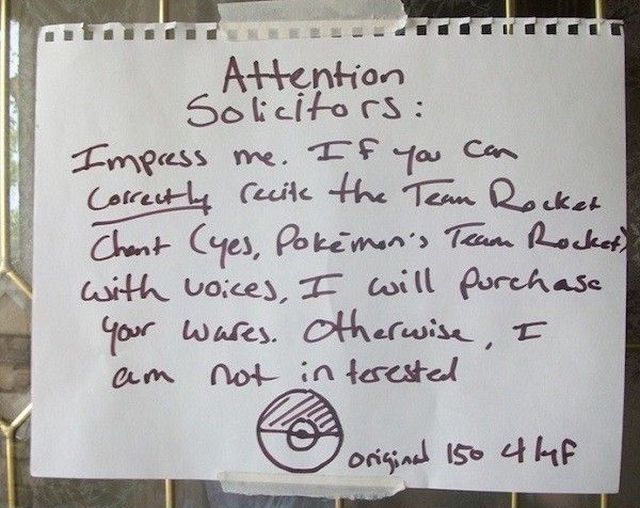 Attention
Solicitors:
Impress me. If you can
correctly recite the Team Rocket
Chant (yes, Pokémon's Team Rocket)
with voices, I will purchase
your wares. Otherwise, I
am not interested
original 150 4 lyf